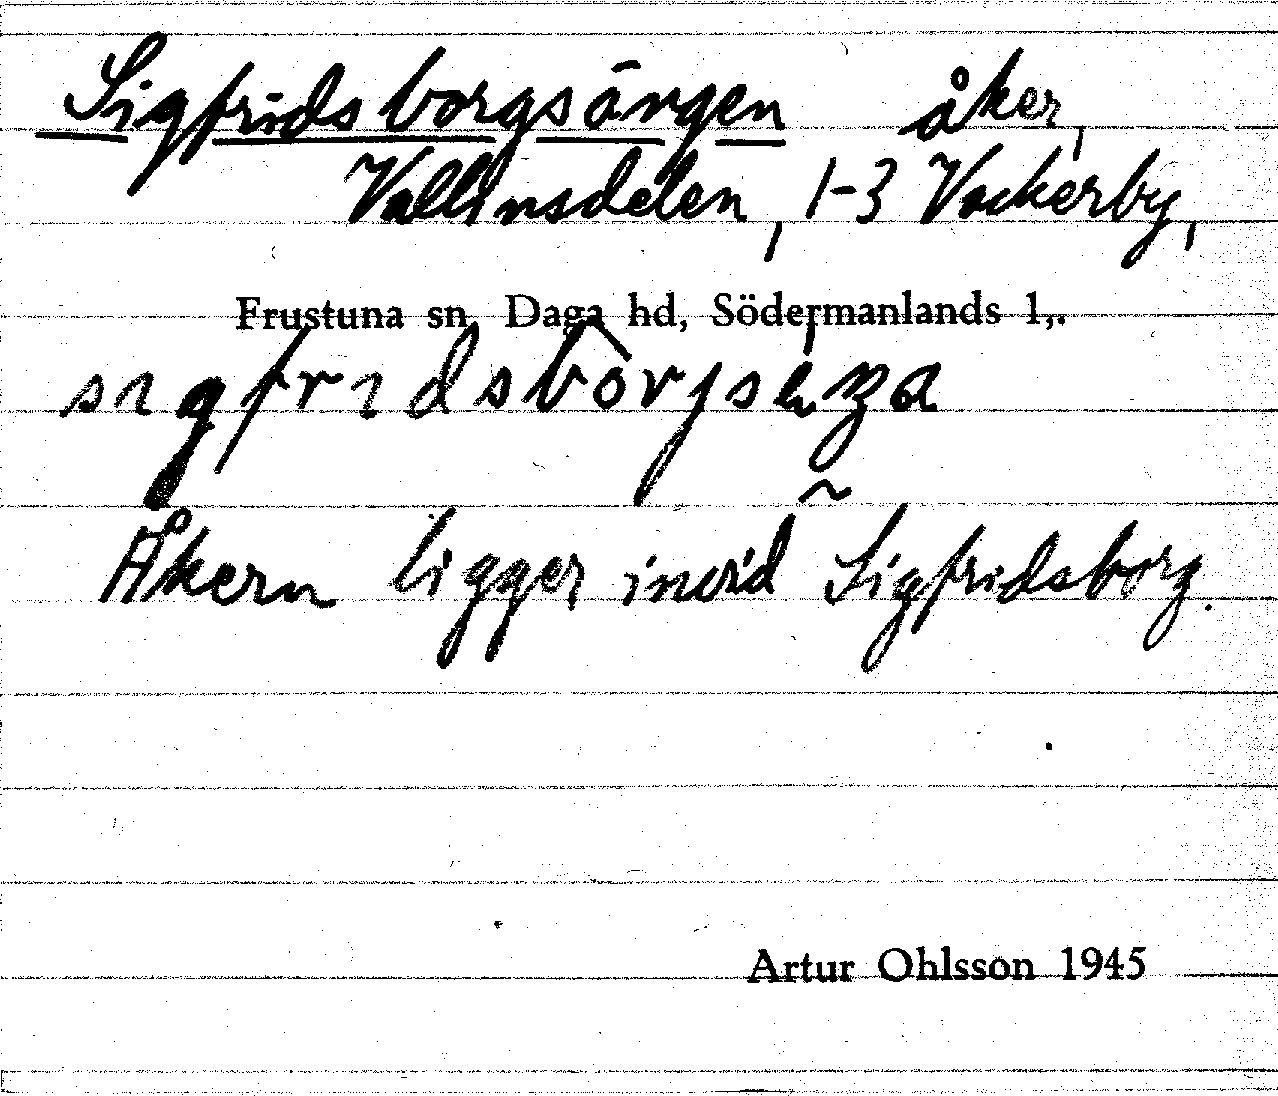 Sigfridsborgsängen åker,
Vallinsdelen, 1-3 Vackerby,
Frustuna sn, Daga hd, Södermanlands l,.
Åkern ligger invid Sigfridsborg.
Artur Ohlsson 1945